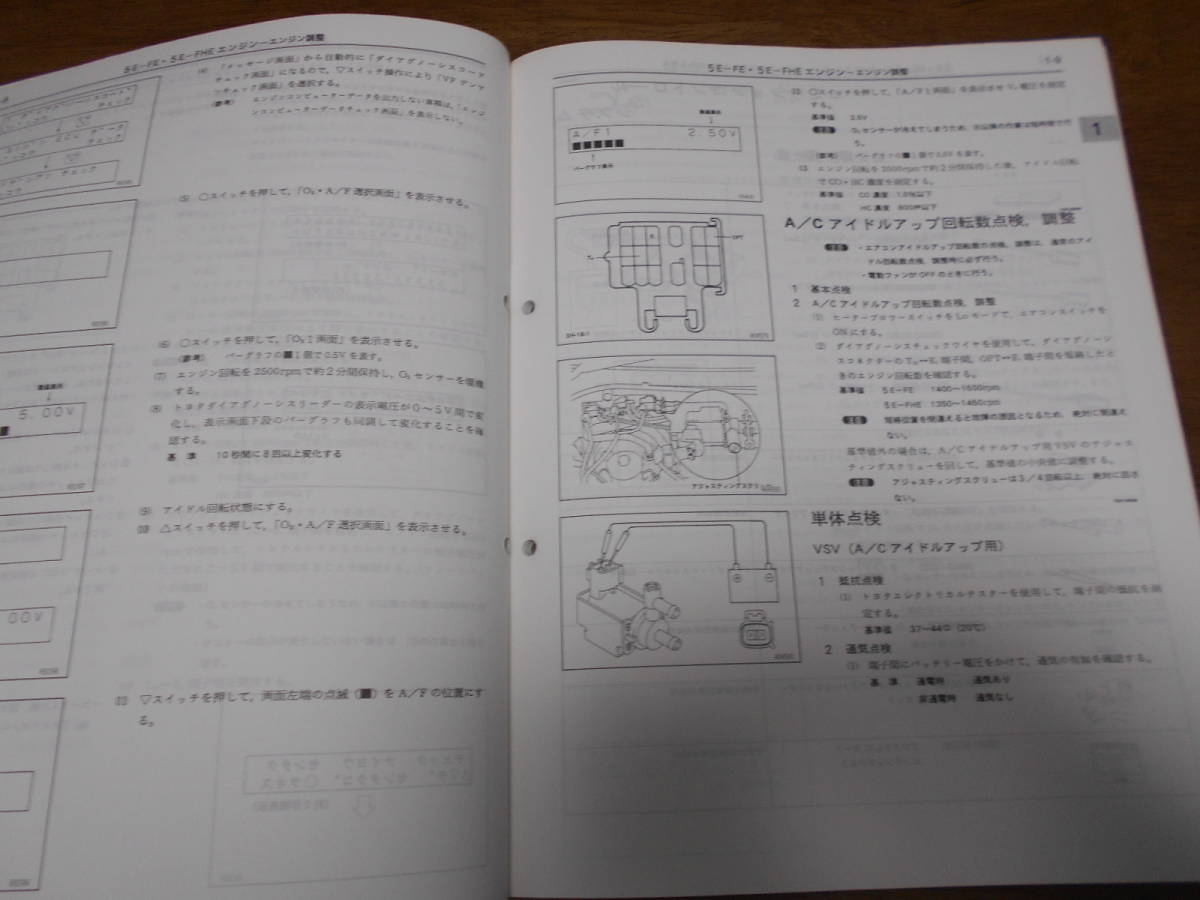 5E−FE・5E−FHE エンジン−エンジン調整
(4) 「メッセージ画面」から自動的に「ダイアグノーシスコード
チェック画面」になるので、▽スイッチ操作により「VF デンア
ツチェック画面」を選択する。
(参考) エンジンコンピューターデータを出力しない車輌は、「エンジ
ンコンピューターデータチェック画面」を表示しない。
チェック
チェック
チェック
(5) ○スイッチを押して、「O₂・A/F 選択画面」を表示させる。
(6) ○スイッチを押して、「O₂ 1 画面」を表示させる。
(参考) バーグラフの■1 個で 0.5V を表す。
(7) エンジン回転を 2500rpm で約 2 分間保持し、O₂ センサーを暖機
する。
(8) トヨタダイアグノーシスリーダーの表示電圧が 0〜5V 間で変
化し、表示画面下段のバーグラフも同調して変化することを確
認する。
基 準 10 秒間に 8 回以上変化する
5.00V
(9) アイドル回転状態にする。
(10) △スイッチを押して、「O₂・A/F 選択画面」を表示させる。
00V
(11) ▽スイッチを押して、画面左端の点滅(■)を A/F の位置にす
る。
5E−FE・5E−FHE エンジン−エンジン調整
1-9
1
A/F1 2.50V
■■■■■
バーグラフ表示
(12) ○スイッチを押して、「A/F1 画面」を表示させ V_F 電圧を測定
する。
基準値 2.5V
注意 O₂ センサーが冷えてしまうため、以降の作業は短時間で行
う。
(参考) バーグラフの■1 個で 0.5V を表す。
(13) エンジン回転を 2500rpm で約 2 分間保持した後、アイドル回転
で CO・HC 濃度を測定する。
基準値 CO 濃度 1.0%以下
HC 濃度 600以下
A/C アイドルアップ回転数点検，調整
注意 ・エアコンアイドルアップ回転数の点検、調整は、通常のアイ
ドル回転数点検、調整時に必ず行う。
・電動ファンが OFF のときに行う。
OPT
1 基本点検
2 A/C アイドルアップ回転数点検，調整
(1) ヒーターブロワースイッチを Lo モードで、エアコンスイッチを
ON にする。
(2) ダイアグノーシスチェックワイヤを使用して、ダイアグノーシ
スコネクターの T_E1↔E₁ 端子間、OPT↔E₁ 端子間を短絡したと
きのエンジン回転数を確認する。
基準値 5E−FE 1400〜1500rpm
5E−FHE 1350〜1450rpm
注意 短絡位置を間違えると故障の原因となるため、絶対に間違え
ない。
基準値外の場合は、A/C アイドルアップ用 VSV のアジャス
ティングスクリューを回して、基準値の中央値に調整する。
注意 アジャスティングスクリューは 3/4 回転以上、絶対に回さ
ない。
アジャスティングスクリュー
単体点検
VSV(A/C アイドルアップ用)
1 抵抗点検
(1) トヨタエレクトリカルテスターを使用して、端子間の抵抗を測
定する。
基準値 37〜44Ω(20℃)
2 通気点検
(1) 端子間にバッテリー電圧をかけて、通気の有無を確認する。
基 準 通電時 通気あり
非通電時 通気なし